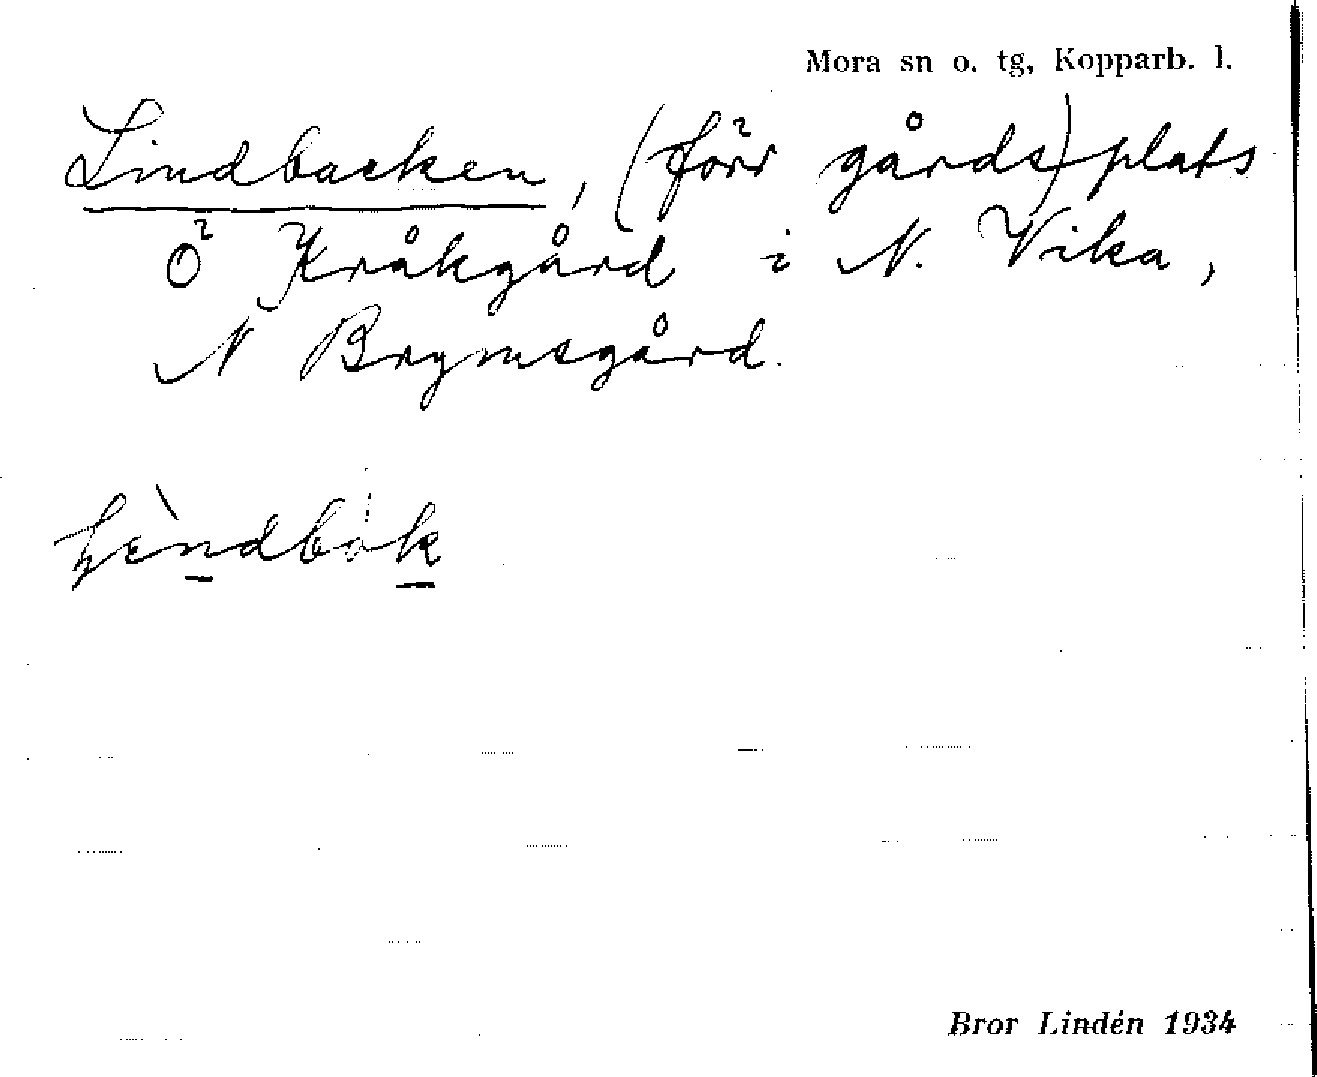 Mora sn o. tg, Kopparb. l.
Lindbacken, (förr gårds)plats
Ö Kråkgård i N. Vika,
N Brymsgård.
Bror Lindén 1934